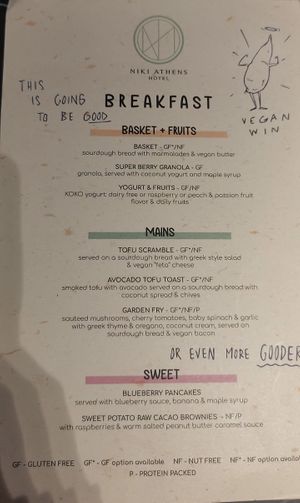 NIKI ATHENS
HOTEL
THIS
IS GOING
TO BE GOOD
BREAKFAST
VEGAN
WIN
BASKET + FRUITS
BASKET - GF*/NF
sourdough bread with marmalades & vegan butter
SUPER BERRY GRANOLA - GF
granola, served with coconut yogurt and maple syrup
YOGURT & FRUITS - GF/NF
KOKO yogurt: dairy free or raspberry or peach & passion fruit
flavor & daily fruits
MAINS
TOFU SCRAMBLE - GF*/NF
served on a sourdough bread with greek style salad
& vegan "feta" cheese
AVOCADO TOFU TOAST - GF*/NF
smoked tofu with avocado served on a sourdough bread with
coconut spread & chives
GARDEN FRY - GF*/NF/P
sauteed mushrooms, cherry tomatoes, baby spinach & garlic
with greek thyme & oregano, coconut cream, served on
sourdough bread & vegan bacon
OR EVEN MORE GOODER
SWEET
BLUEBERRY PANCAKES
served with blueberry sauce, banana & maple syrup
SWEET POTATO RAW CACAO BROWNIES - NF/P
with raspberries & warm salted peanut butter caramel sauce
GF - GLUTEN FREE GF* - GF option available NF - NUT FREE NF* - NF option available
P - PROTEIN PACKED